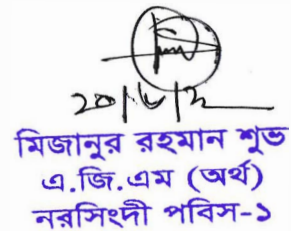 মিজানুর রহমান শুভ
এ.জি.এম (অর্থ)
নরসিংদী পবিস-১